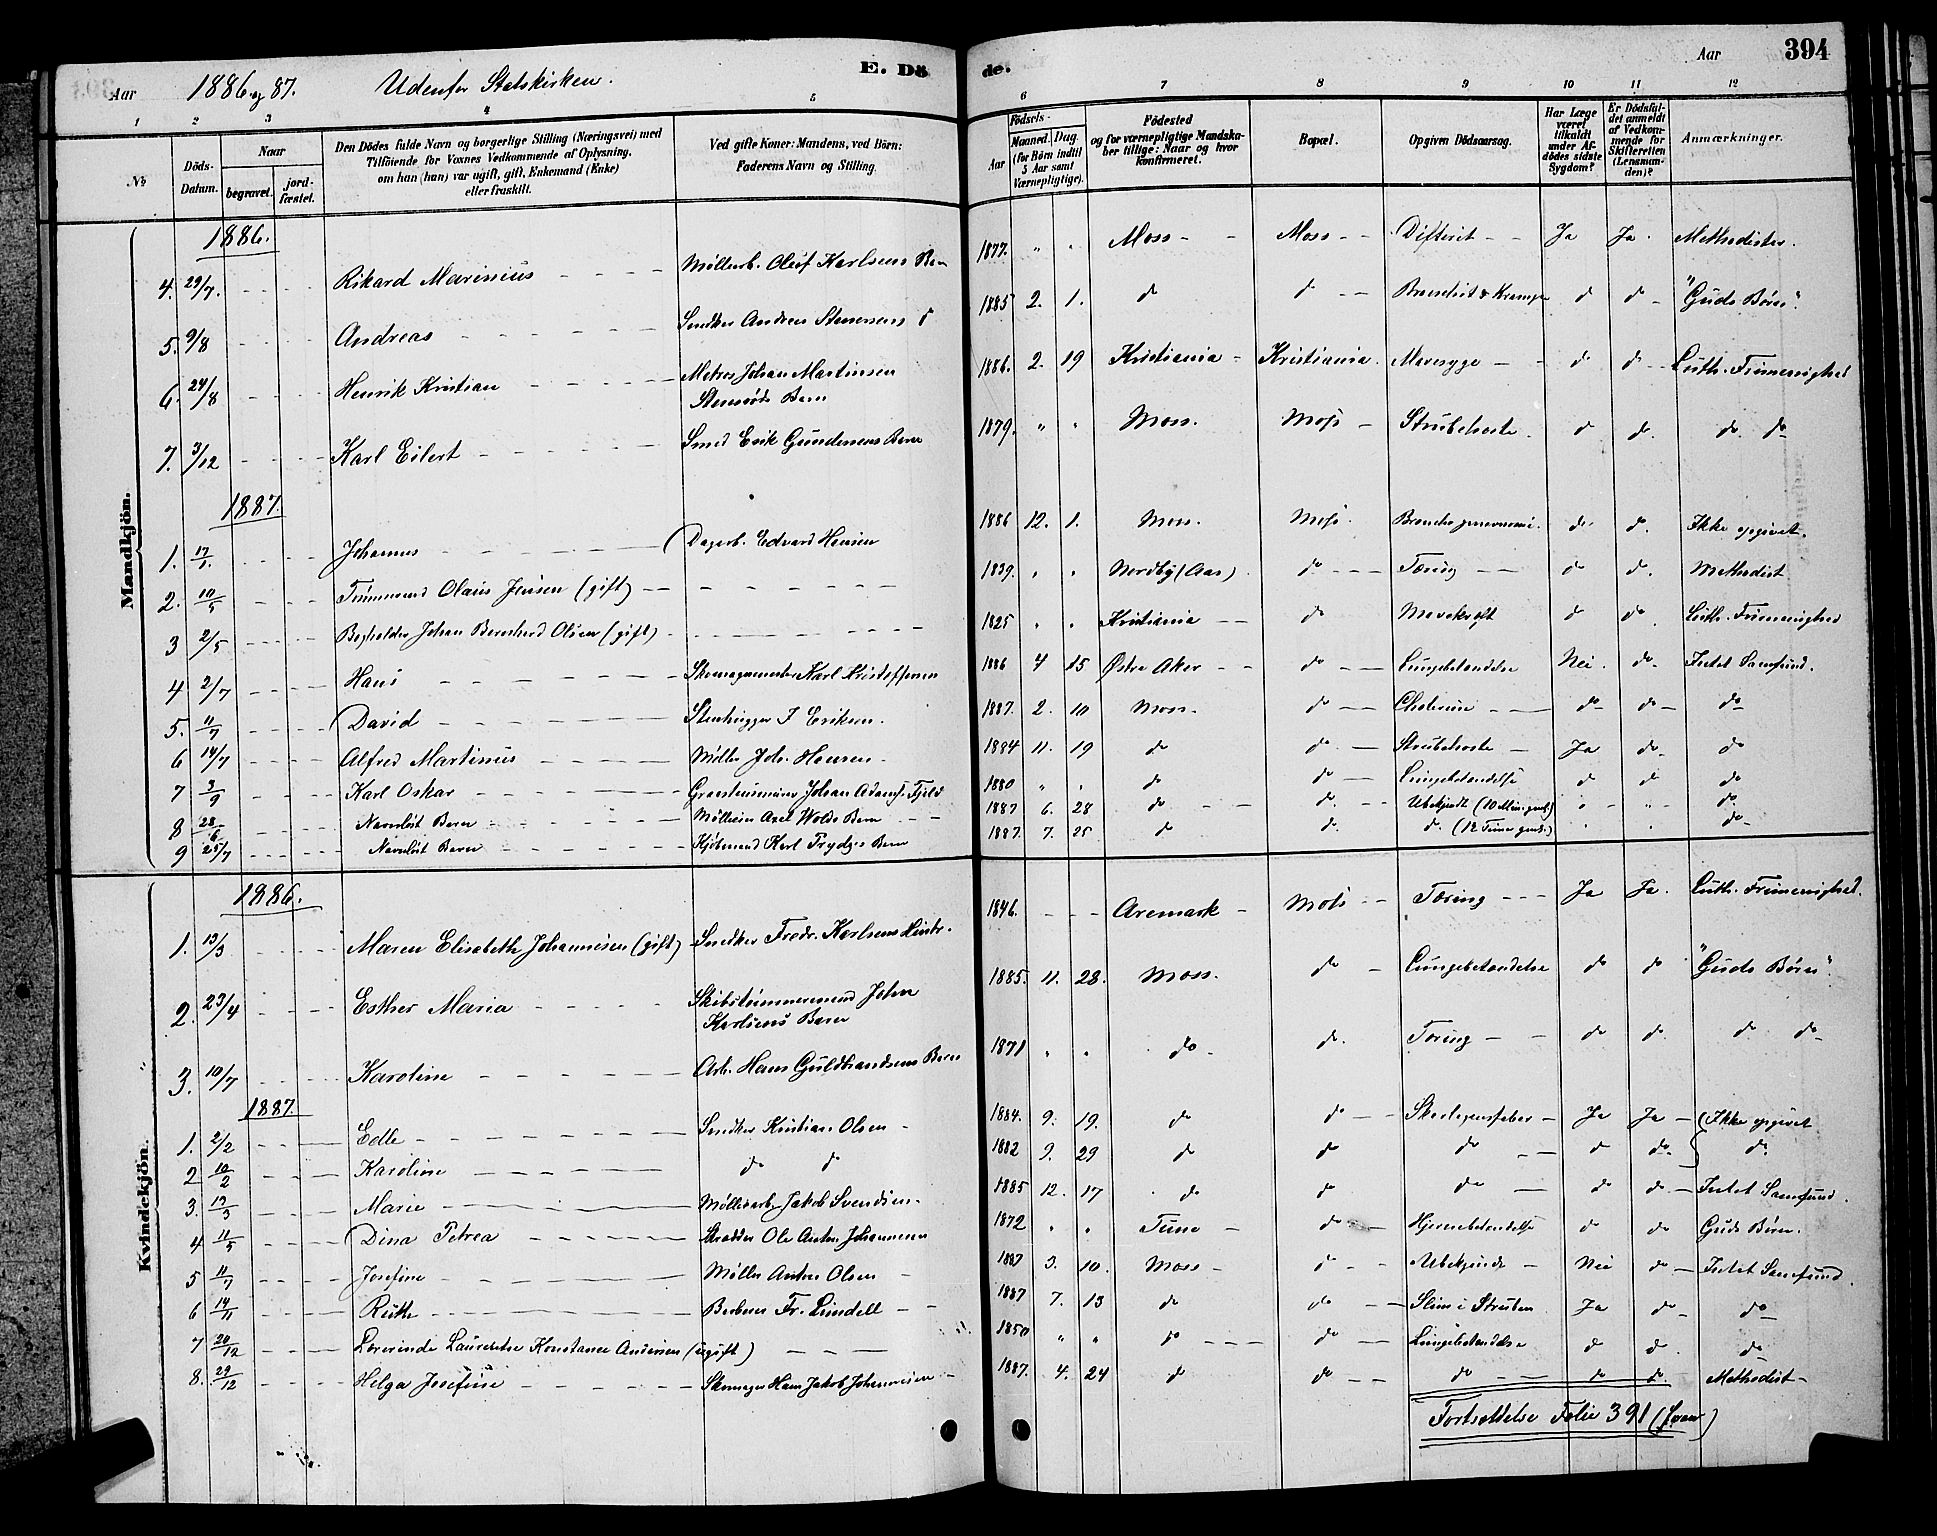 Aar 1886 og 87. Udenfor Statskirken. E. Dö de. Aar 394
1 2 3 4 5 6 7 8 9 10 11 12
No
Döds-Datum.
Naar
begravet.
jord-fæstet.
Den Dödes fulde Navn og borgerlige Stilling (Næringsvei) med
Tilföiende for Voxnes Vedkommende af Oplysning,
om han (hun) var ugift, gift, Enkemand (Enke)
eller fraskilt.
Ved gifte Koner: Mandens, ved Börn:
Faderens Navn og Stilling.
Födsels-
Aar
Maaned. Dag.
(for Börn indtil
5 Aar samt
Værnepligtige).
Födested
og for værnepligtige Mandska-
ber tillige: Naar og hvor
konfirmeret.
Bopæl.
Opgiven Dödsaarsag.
Har Læge
været
tilkaldt
under Af-
dödes sidste
Sygdom?
Er Dödsfal-
det anmeldt
af Vedkom-
mende for
Skifteretten
(Lensman-
den)?
Anmærkninger.
Mandkjön.
1886.
4. 29/7. Rikard Marinius Möllerb. Oluf Karlsens Barn 1877. " " Moss Moss Difterit Ja Ja. Methodister.
5. 9/8 Andreas Snedker Andreas Stenersens d 1885 2. 1. d d Bronchit & Krampe d d "Guds Börn".
6. 24/8 Henrik Kristian Matros Johan Martinsen
Stensröds Barn 1886. 2. 19 Kristiania Kristiania. Mavesyge d d Luth. Frimenighed
7. 3/12 Karl Eilert Smed Erik Gundersens Barn 1879. " " Moss. Moss Strubehoste d d. do do
1887.
1. 17/1. Johannes Dagarb. Edvard Hansen 1886 12. 1. Moss. Moss. d. d. Ikke opgivet.
2. 10/5 Tömmermand Olaus Jensen (gift) 1839. " " Nordby (Aas) do Tæring d d. Methodist
3 2/5 Johan Bernhard Olsen (gift) 1825 " " Kristiania do Mavekræft d do Luth. Frimenighed
4 2/7 Hans Skomagermester Karl Kristoffersen 1886 4 15 Östre Aker do Lungebetændelse Nei. do Intet Samfund.
5. 11/7 David Stenhugger J Eriksen. 1887. 2. 10 Moss. do Cholerine do do do
6 14/7 Alfred Martinus Möller Joh. Hansen 1884 11. 19 d do Strubehoste Ja do do
7 3/9 Karl Oskar Johan Fjeld 1880 " " d do Lungebetændelse d d do
8 28/6 Navnlöst Barn Axel Wolds Barn 1887 6. 28 d d. Ubekjendt (10 Min. gml.) " " do
9 25/7 Navnlöst Barn Kjöbmand Karl Barn 1887. 7. 25 d d. d. (12 Timer gml.) " " do
Kvindekjön.
1886.
1. 13/3 Maren Elisabeth Johannesen (gift) Snedker Fredr. Karlsens Hustr. 1846. Aremark Moss Tæring Ja Ja. Luth. Frimenighed.
2. 23/4 Esther Maria Skibstömmermand Johan
Karlsens Barn 1885. 11. 28. Moss. do Lungebetændelse do do "Guds Börn".
3. 10/7 Karoline Arb. Hans Guldbrandsens Barn 1871 " " do do. Tæring do do. do do
1887.
1. 2/2 Edle Snedker Kristian Olsen 1884. 9. 19. d do Skarlagensfeber Ja Ja (Ikke opgivet
2 10/2 Karoline d d 1882 9. 29 d d do d do. do.
3. 13/3 Marie Möllerarb. Jakob Svendsen. 1885 12. 17 d d do d do Intet Samfund.
4 11/5 Dina Petrea Skrædder Ole Anton Johannesen 1872 " " Tune do Hjernebetændelse do do Guds Börn.
5 11/7 Josefine Möller Anton Olsen 1887 3. 10. Moss d Ubekjendt Nei do Intet Samfund.
6 14/11 Ruth Fr. Lindell 1887 7. 13 do do Slim i Struben Ja do do
7 20/12 Laurentse Konstance Andersen (ugift) 1850 " " do do Lungebetændelse d d. do
8. 29/12 Helga Josefine Skomager Hans Jakob Johannesen 1887. 4. 24 d do do do d. Methodist
Fortsættelse Folie 391